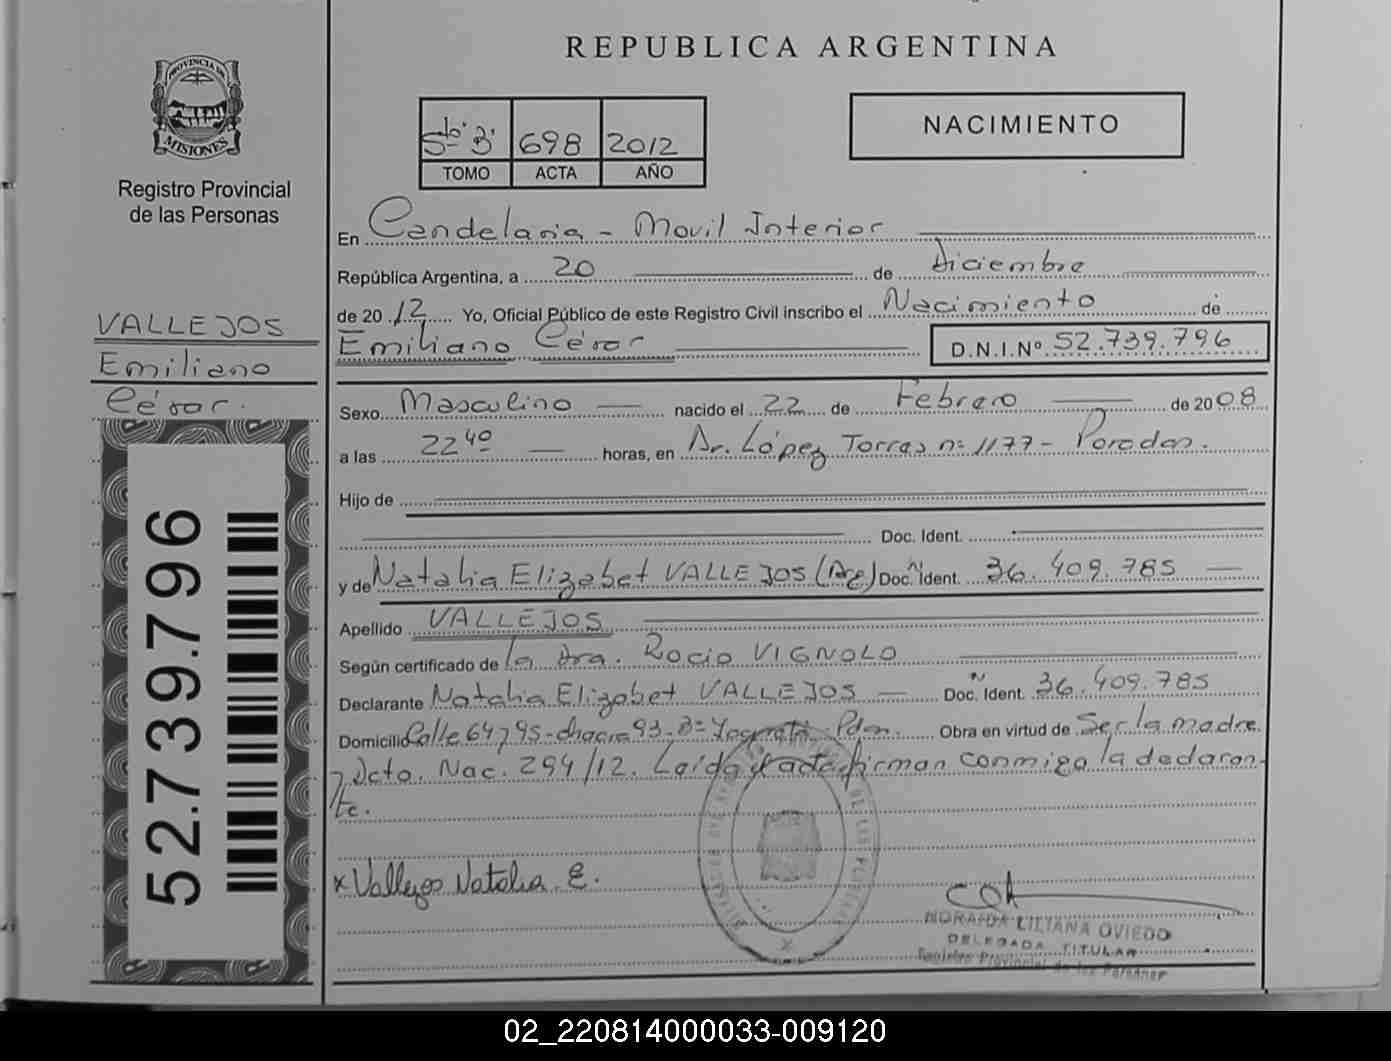 REPUBLICA ARGENTINA
PROVINCIA DE
MISIONES
Registro Provincial
de las Personas
5to. B. 698 2012
TOMO ACTA AÑO
NACIMIENTO
En Candelaria - Movil Interior
República Argentina, a 20 de diciembre
de 2012 Yo, Oficial Público de este Registro Civil inscribo el Nacimiento de
Emiliano César D.N.I.Nº 52.739.796
VALLEJOS
Emiliano
César.
Sexo Masculino nacido el 22 de Febrero de 2008
a las 22 40 horas, en Av. López Torres nº 1177 - Posadas.
Hijo de
Doc. Ident.
y de Natalia Elizabet VALLEJOS (Arg) Doc. Ident. 36.409.785
Apellido VALLEJOS
Según certificado de la Dra. Rocio VIGNOLO
Declarante Natalia Elizabet VALLEJOS Doc. Ident. 36.409.785
Domicilio Calle 64 y 95 - chacra 93 - Bº Yacyretá Pdas. Obra en virtud de Ser la madre
y Dcto. Nac. 294/12. Leída el acta firman conmigo la declaran-
te.
52.739.796
x Vallejos Natalia E.
NORAIDA LILIANA OVIEDO
DELEGADA TITULAR
Registro Provincial de las Personas
02_220814000033-009120